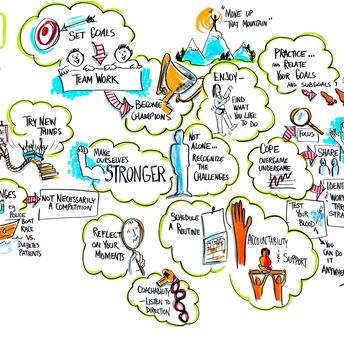 SET GOALS
TEAM WORK
BECOME
CHAMPIONS
"MOVE UP
THAT MOUNTAIN"
ENJOY-
FIND
WHAT
YOU LIKE
TO DO
PRACTICE...
AND RELATE
YOUR GOALS
AND SUBGOALS
TRY NEW
THINGS
MAKE
OURSELVES
STRONGER
NOT
ALONE...
RECOGNIZE
THE
CHALLENGES
COPE
OVERGAME
UNDERGAME
FOCUS
SHARE
NOT NECESSARILY
A COMPETITION
POLICE
BOAT
RACE
VS.
DIABETES
PATIENTS
REFLECT
ON YOUR
MOMENTS
SCHEDULE
A ROUTINE
ACCOUNTABILITY
& SUPPORT
TEST
YOUR
BLOOD
YOU
CAN
DO
IT
COACHABILITY
- LISTEN TO
DIRECTION